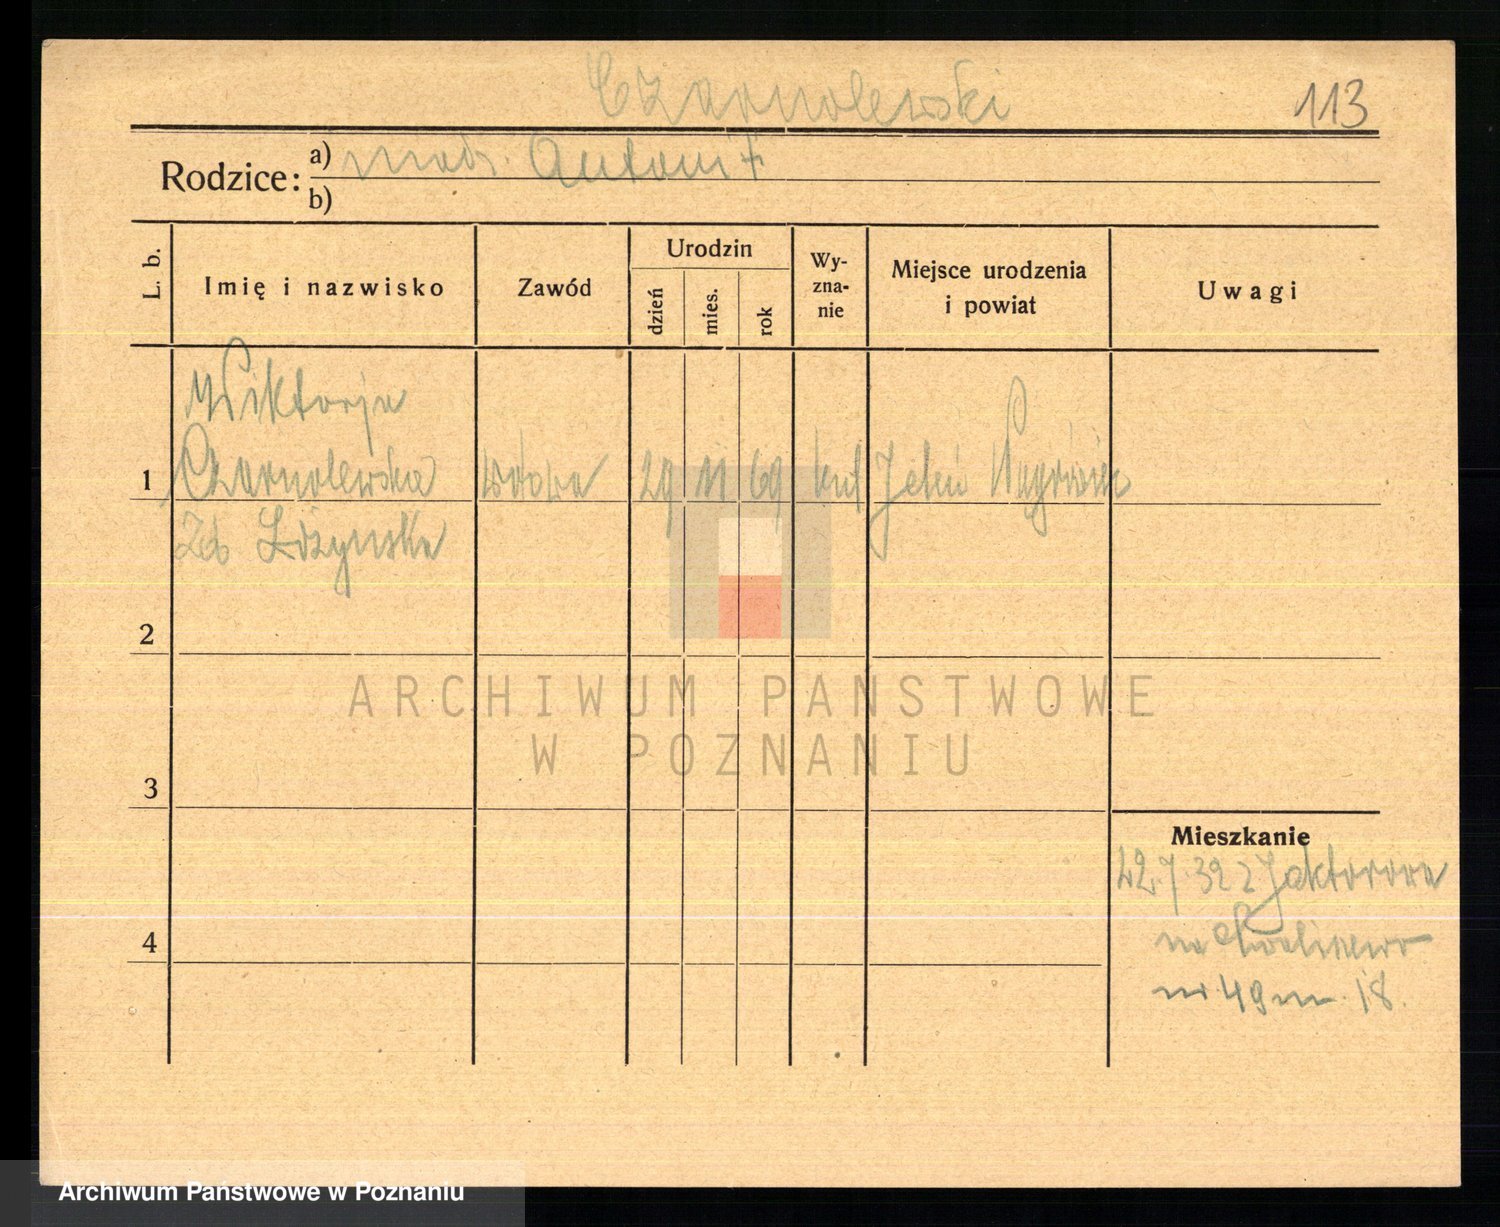 Czarnolewski
113
Rodzice:
a) Antoni †
b)
L. b.
Imię i nazwisko
Zawód
Urodzin
dzień
mies.
rok
Wy-
zna-
nie
Miejsce urodzenia
i powiat
Uwagi
Wiktorja
1 Czarnolewska wdowa 29 11 69 kat Jeleń
2
3
4
Mieszkanie
22.7.32 z Jaktorowa
na
nr 49 m. 18.
ARCHIWUM PAŃSTWOWE
W POZNANIU
Archiwum Państwowe w Poznaniu